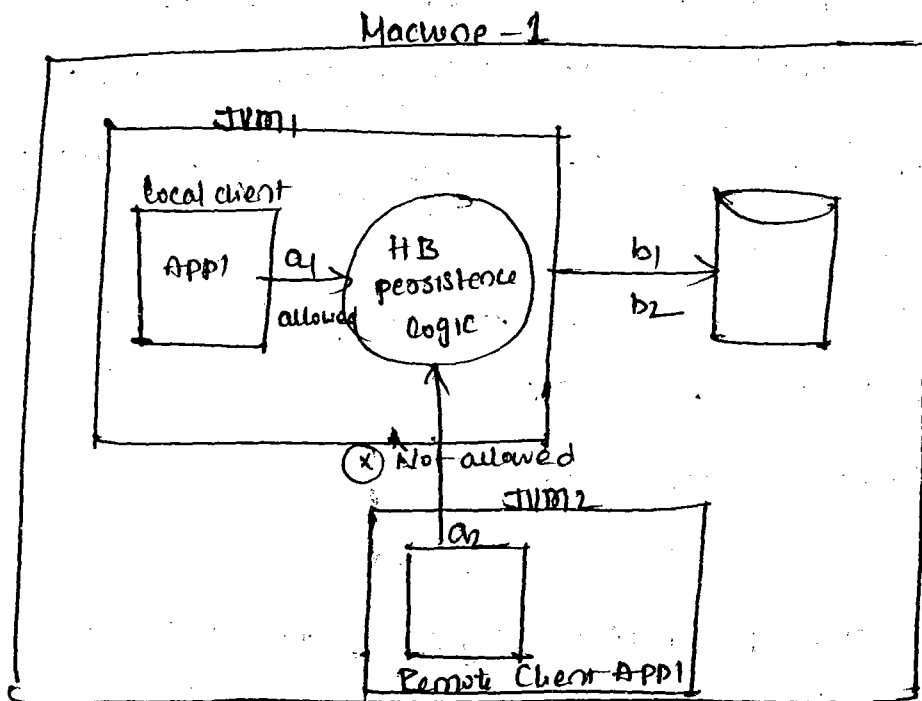 Machine - 1
JVM1
local client
APP1
a1
allowed
HB
persistence
logic
b1
b2
(x) Not allowed
JVM2
a2
Remote Client APP1